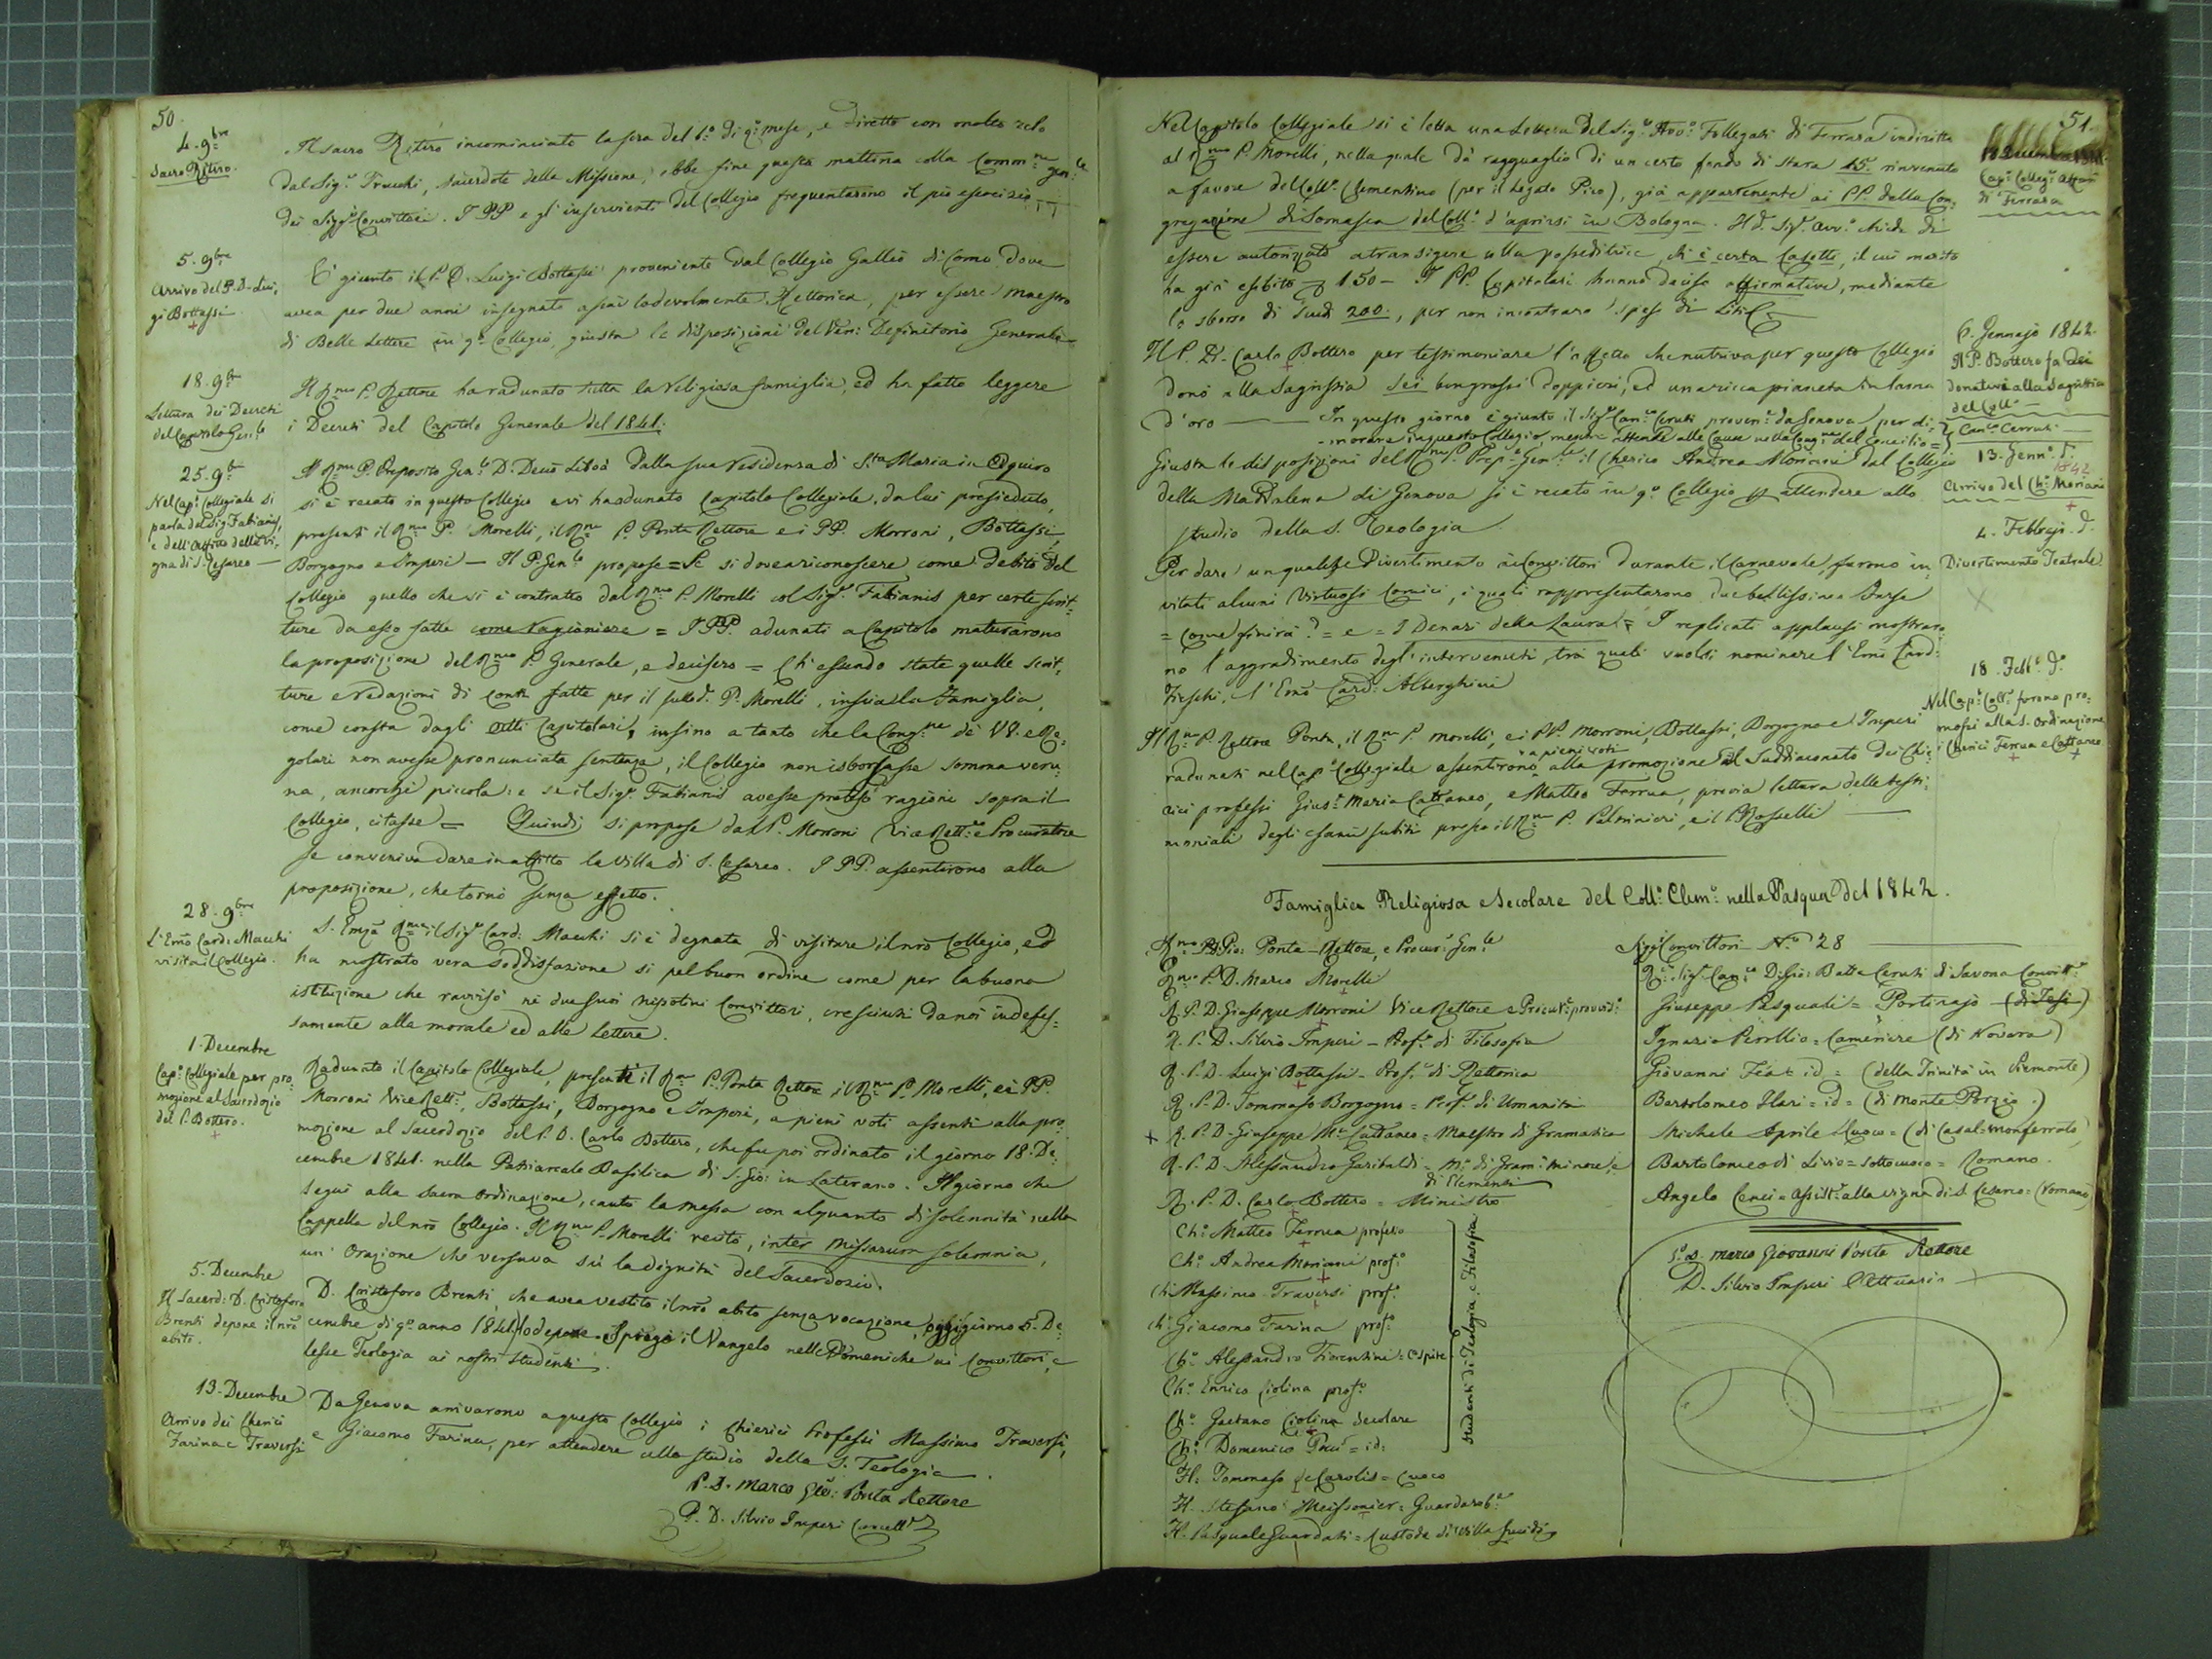 50.
4. 9bre
Sacro Ritiro.
Il sacro Ritiro incominciato la sera del 1º di qº mese, e diretto con molto zelo
dal Sigr Trucchi, sacerdote della Missione, ebbe fine questa mattina colla Commne genle
dei Siggri Convittori. I PP e gl'inservienti del Collegio frequentarono il pio esercizio
5. 9bre
Arrivo del P. D. Lui,
gi Bottassi
E' giunto il P. D. Luigi Bottassi proveniente dal Collegio Gallio di Como dove
avea per due anni insegnato assai lodevolmente Rettorica, per essere maestro
di Belle Lettere in qº Collegio, giusta le disposizioni del Ven: Definitorio Generale
18. 9bre
Lettura dei Decreti
del Capitolo Genle
Il Rmo P. Rettore ha radunato tutta la religiosa famiglia, ed ha fatto leggere
i Decreti del Capitolo Generale del 1841.
25. 9bre
Nel Capº Collegiale si
parla del Sig Fabianis,
e dell'affitto della vi-
gna di S. Cesareo —
Il Rmo P. Preposito Genle D. Decio Libois dalla sua residenza di Sta Maria in Aquiro
si è recato in questo Collegio e vi ha adunato Capitolo Collegiale, da lui presieduto,
presenti il Rmo P. Morelli, il Rmo P. Ponta Rettore e i PP. Morroni, Bottassi,
Borgogno e Imperi — Il P. Genle propose = Se si dovea riconoscere come debito del
Collegio quello che si è contratto dal Rmo P. Morelli col Sigr Fabianis per certe scrit-
ture da esso fatte come ragioniere = I PP. adunati a Capitolo maturarono
la proposizione del Rmo P. Generale, e decisero = Ch'essendo state quelle scrit-
ture e redazioni di conti fatte per il sudd. P. Morelli, inscia la Famiglia,
come consta dagli Atti Capitolari, insino a tanto che la Congne de' VV. e Re-
golari non avesse pronunciata sentenza, il Collegio non isborsasse somma veru-
na, ancorchè piccola: e se il Sigr Fabianis avesse preteso ragioni sopra il
Collegio, citasse = Quindi si propose dal P. Morroni Vice Rettre e Procuratore
se conveniva dare in affitto la villa di S. Cesareo. I PP. assentirono alla
proposizione, che tornò senza effetto.
28. 9bre
L'Emo Card. Macchi
visita il Collegio.
S. Emza Rma il Sigr Card. Macchi si è degnata di visitare il nrõ Collegio, ed
ha mostrato vera soddisfazione sì pel buon ordine come per la buona
istituzione che ravvisò ne due suoi nipotini Convittori, cresciuti da noi indefes-
samente alla morale ed alle Lettere.
1. Decembre
Capº Collegiale per pro-
mozione al Sacerdozio
del P. Bottero.
Radunato il Capitolo Collegiale, presente il Rmo P. Ponta Rettore il Rmo P. Morelli, e i PP.
Morroni Vice Rettre, Bottassi, Borgogno e Imperi, a pieni voti assentì alla pro-
mozione al Sacerdozio del P. D. Carlo Bottero, che fu poi ordinato il giorno 18. De-
cembre 1841. nella Patriarcale Basilica di S. Gio: in Laterano. Il giorno che
seguì alla sacra ordinazione, cantò la messa con alquanto di solennità nella
Cappella del nrõ Collegio. Il Rmo P. Morelli recitò, inter Missarum solemnia,
un' Orazione che versava su la dignità del Sacerdozio.
5. Decembre
Il Sacerd: D. Cristoforo
Brenti depone il nrõ
abito.
D. Cristoforo Brenti, che avea vestito il nrõ abito senza vocazione, oggi giorno 5. De-
cembre di qº anno 1841 lo depone. Spiegò il Vangelo nelle Domeniche ai Convittori, e
lesse Teologia ai nostri studenti.
13. Decembre
Arrivo dei Cherici
Farina e Traversi
Da Genova arrivarono a questo Collegio i Chierici Professi Massimo Traversi,
e Giacomo Farina, per attendere allo studio della S. Teologia.
P. D. Marco Gio: Ponta Rettore
P. D. Silvio Imperi Cancellre
51.
Capº Collegº affari
di Ferrara
Nel Capitolo Collegiale si è letta una Lettera del Sigr Avvº Follegati di Ferrara indiritta
al Rmo P. Morelli, nella quale dà ragguaglio di un certo fondo di stara 45. rinvenuto
a favore del Collº Clementino (per il Legato Pico), già appartenente ai PP. della Con-
gregazione di Somasca del Collº d'aprirsi in Bologna. Il dº Sigr Avvº chiede di
essere autorizzato a transigere colla posseditrice, ch'è certa Casotti, il cui marito
ha già esibito 150 — I PP. Capitolari hanno deciso affirmative, mediante
lo sborso di scudi 200., per non incontrare spese di Liti.
6. Gennajo 1842.
Il P. Bottero fa dei
donativi alla Sagristia
del Collº
Il P. D. Carlo Bottero per testimoniare l'affetto che nutriva per questo Collegio
donò alla Sagristia sei ben grossi doppieri, ed una ricca pianeta in lama
d'oro — In questo giorno è giunto il Sigr Canco Ceruti provente da Genova per di-
morare in questo Collegio, mentre attende alle Cause nella Congne del Concilio =
Canco Cerruti —
13. Gennº dº
1842
Arrivo del Chº Moriani
Giusta le disposizioni del Rmo P. Prepº Genle il Cherico Andrea Moriani dal Collegio
della Maddalena di Genova si è recato in qº Collegio per attendere allo
studio della S. Teologia.
4. Febbrajo dº
Divertimento Teatrale
Per dare un qualche Divertimento ai Convittori durante il Carnevale, furono in-
vitati alcuni Virtuosi Comici, i quali rappresentarono due bellissime Farse
= Come finirà? = e = I Denari della Laura = I replicati applausi mostraro-
no l'aggradimento degl'intervenuti, tra quali vuolsi nominare l'Emo Card:
Fieschi, l'Emo Card: Alberghini
18. Febbº dº
Nel Capº Collº furono pro-
mossi alla S. Ordinazione
i Cherici Ferrua e Cattaneo
Il Rmo P. Rettore Ponta, il Rmo P. Morelli, e i PP. Morroni, Bottassi, Borgogno e Imperi
radunati nel Capº Collegiale assentirono a pieni voti alla promozione al Suddiaconato dei Che-
rici professi Giusº Maria Cattaneo, e Matteo Ferrua, previa lettura delle testi-
moniali degli esami subiti presso il Rmo P. Palmieri, e il P. Rosselli
Famiglia Religiosa e Secolare del Collº Clemº nella Pasqua del 1842.
Rmo P. D. Gio: Ponta – Rettore, e Procurº Genle
Rmo P. D. Marco Morelli
R. P. D. Giuseppe Morroni Vice Rettore e Procurº provinº
R. P. D. Silvio Imperi – Profº di Filosofia
R. P. D. Luigi Bottassi – Profº di Rettorica
R. P. D. Tommaso Borgogno = Profº di Umanità
R. P. D. Giuseppe Mª Cattaneo = Maestro di Gramatica
R. P. D. Alessandro Garibaldi = Mº di Gramª minore, e
di Elementi
R. P. D. Carlo Bottero = Ministro
Chº Matteo Ferrua professo
Chº Andrea Moriani profº
Chº Massimo Traversi profº
Chº Giacomo Farina profº
Chº Alessandro Fiorentini = Ospite
Chº Enrico Ciolina profº
Chº Gaetano Ciolina secolare
Chº Domenico Pucci = id:
studenti di Teologia, e Filosofia
H. Tommaso de Carolis = Cuoco
H. Stefano Meissonier = Guardarobª
H. Pasquale Guardati = Custode di Villa Lucidi
Siggri Convittori Nº 28
Rº Sigr Canco D. Gio: Batta Ceruti di Savona Convittº
Giuseppe Pasquali = Portinajo (di Jesi)
Ignazio Perollio = Cameriere (di Novara)
Giovanni Fea = id = (della Trinità in Piemonte)
Bartolomeo Ilari = id = (di Monte Porzio.)
Michele Aprile Cuoco = (di Casal-monferrato)
Bartolomeo di Livio = sottocuoco = Romano.
Angelo Cenci = Assistº alla vigna di S. Cesareo = (Romano)
P. D. Marco Giovanni Ponta Rettore
D. Silvio Imperi Attuario